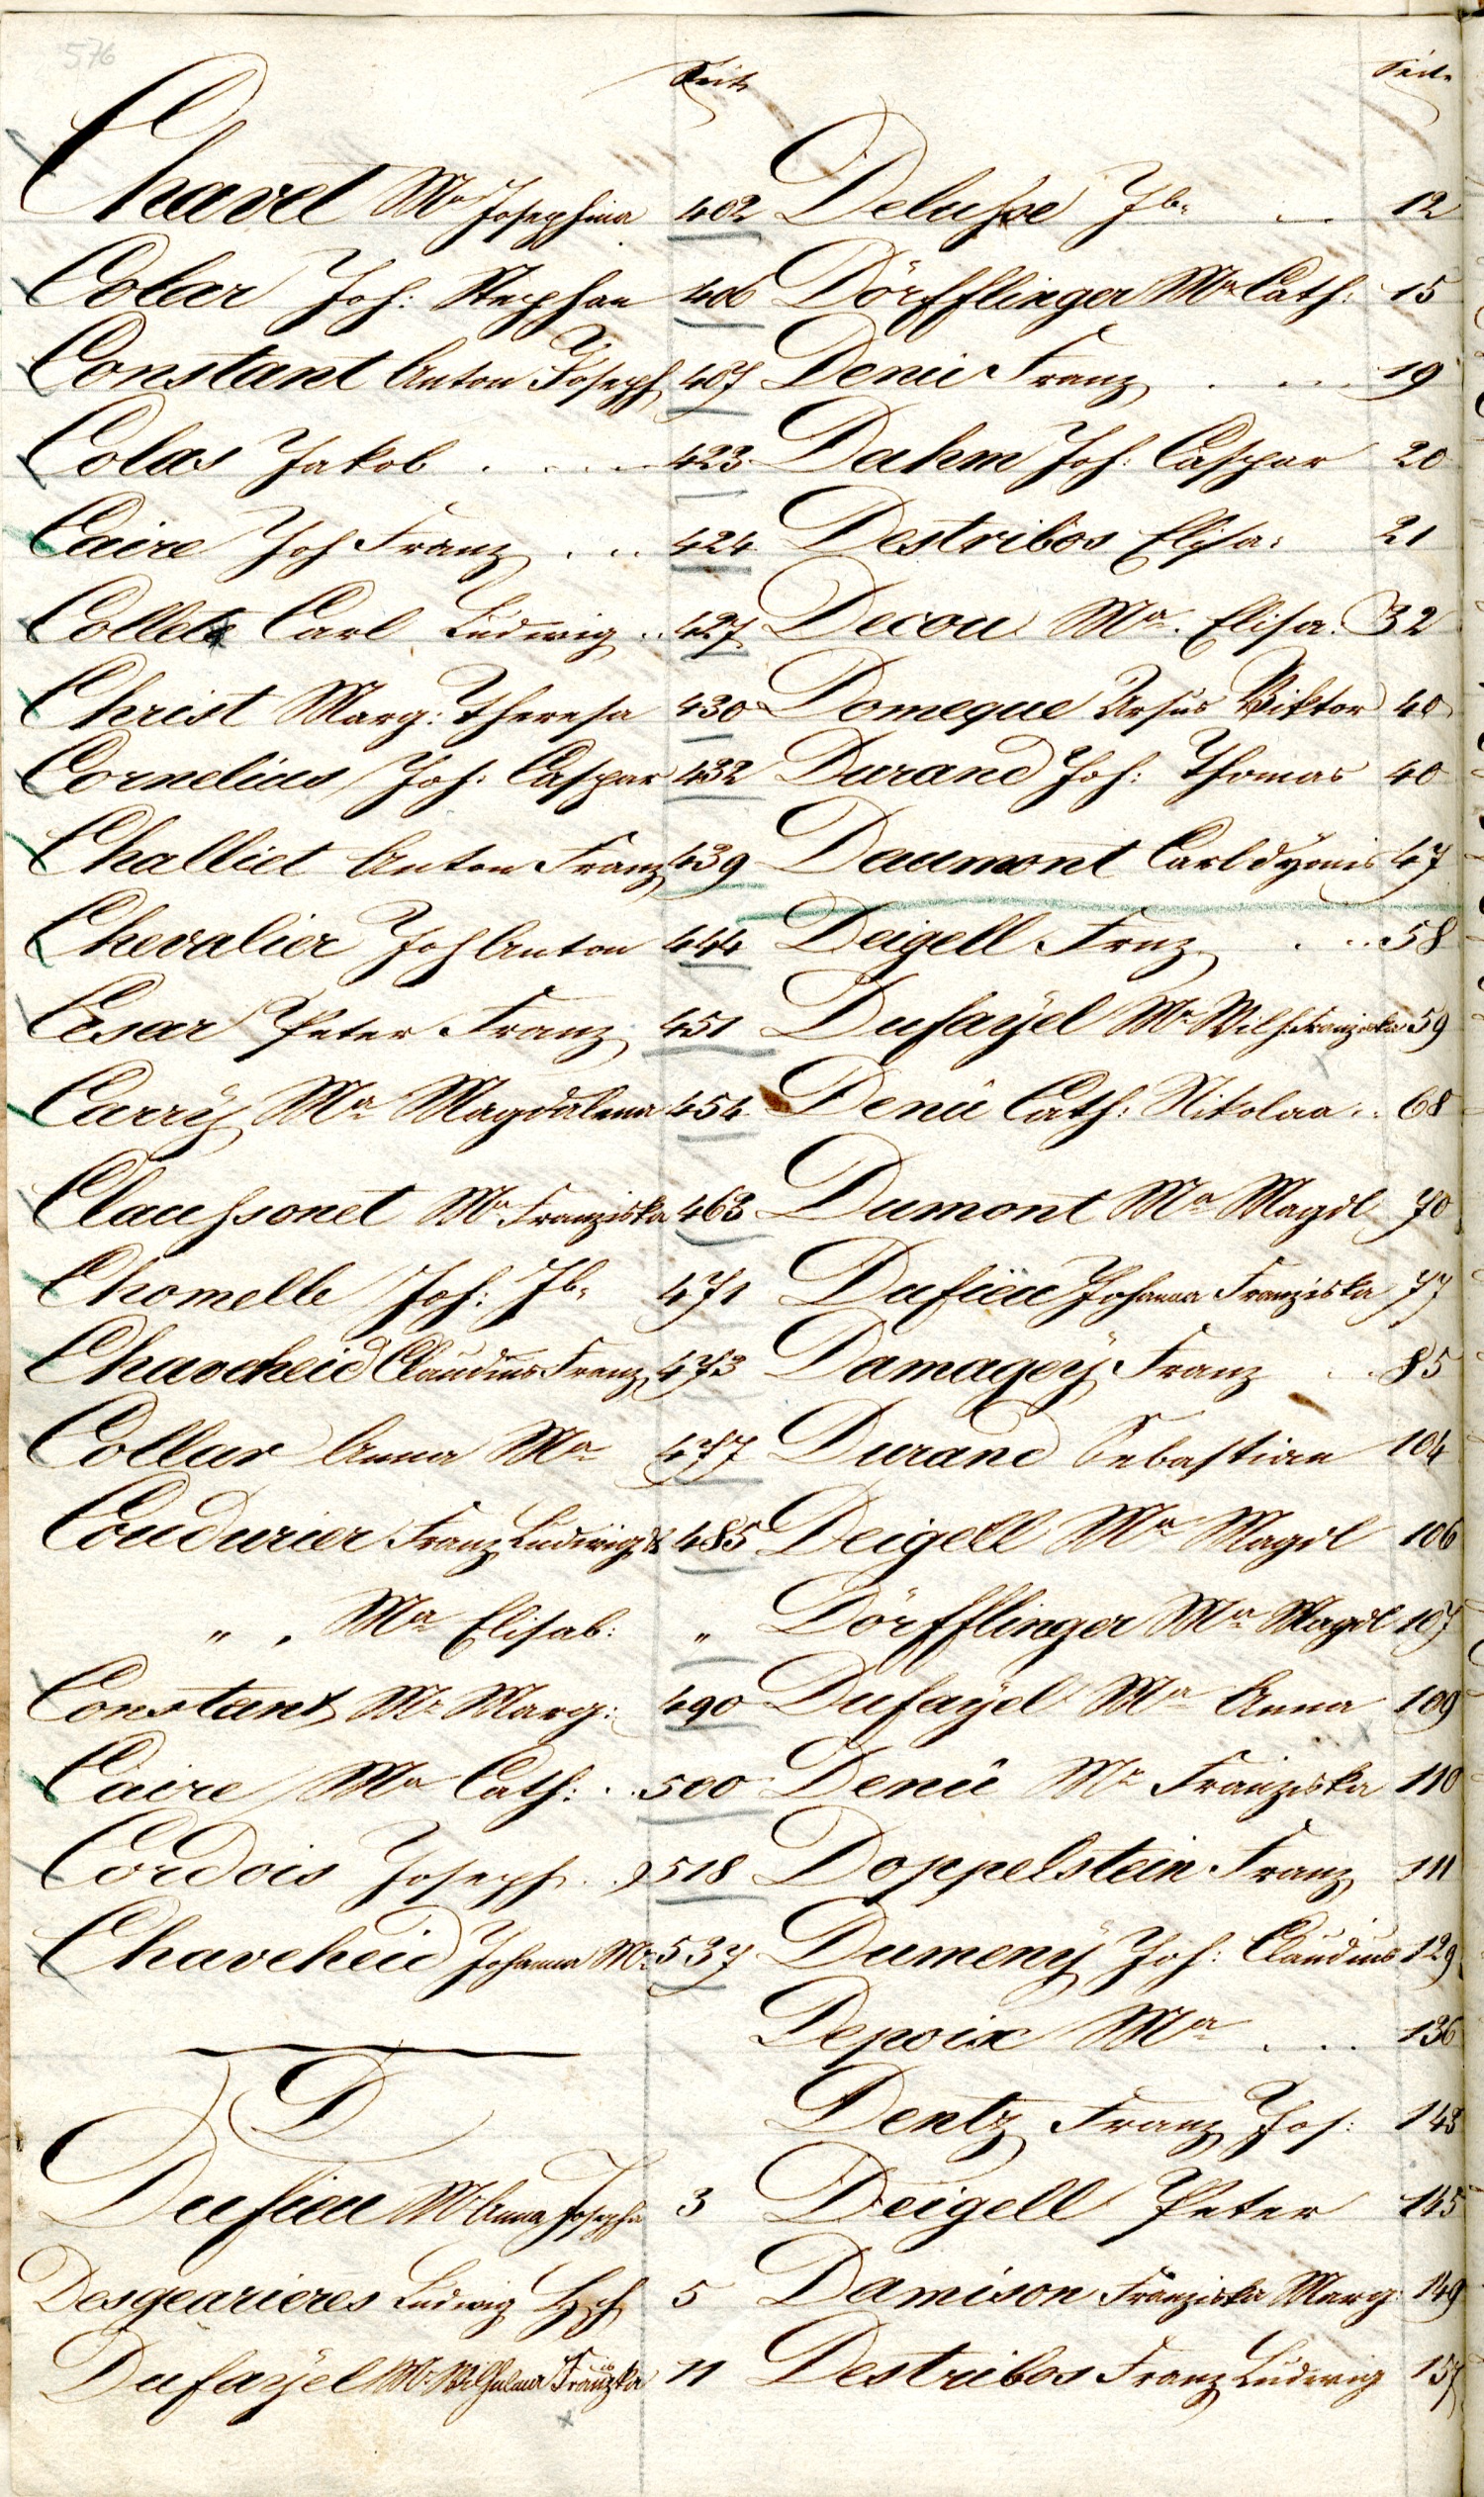 576
Seite
Chavel Ma Josephina 402
Colar Joh: Stephan 406
Constant Anton Joseph 407
Colas Jakob . . . . 423
Caire Joh Franz . . . 424
Collet Carl Ludwig . . 427
Christ Marg: Theresa 430
Cornelius Joh: Caspar 432
Challiet Anton Franz 439
Chevalier Joh Anton 444
Cesar Peter Franz 451
Carrÿ Ma Magdalena 454
Claussonet Ma Franziska 463
Chomelle Joh: Jb. 471
Chaveheid Claudius Franz 473
Collar Anna Ma 477
Coudurier Franz Ludwig & 485
" " Ma Elisab: "
Constant Ma Marg: 490
Caire Ma Cath: . . 500
Cordois Joseph . . 518
Chaveheid Johanna Ma 537
D
Dufieu Ma Anna Josepha 3
Desgearieres Ludwig 5
Dufaÿel Ma Wilhelma Franziska 11
Seite
Delusse Jb. . . . 12
Dörfflinger Ma Cath: 15
Denü Franz . . . . 19
Dahm Joh: Caspar 20
Destribos Elisa: 21
Decou Ma. Elisa. 32
Domeque Ursus Viktor 40
Durand Joh: Thomas 40
Daumont Carl dÿonis 47
Deigell Frnz . . . 58
Dufaÿel Ma Wilh. Franziska 59
Denü Cath: Nikolaa . . 68
Dumont Ma Magdl 70
Dufieu Johanna Franziska 77
Damageÿ Franz . . 85
Durand Sebastian 104
Deigell Ma Magdl 106
Dörfflinger Ma Magdl 107
Dufaÿel Ma Anna 109
Denü Ma Franziska 110
Doppelstein Franz 111
Dumenÿ Joh: Claudius 129
Depoix Ma . . . 136
Dentz Franz Jos: 143
Deigell Peter 145
Damison Franziska Marg: 149
Destribos Franz Ludwig 157